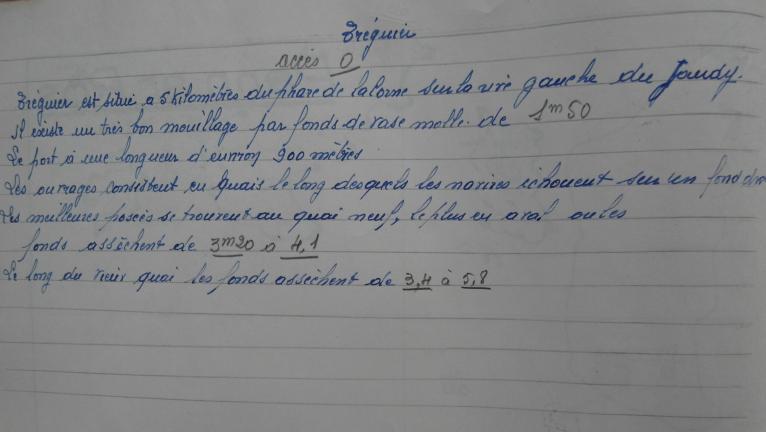 Tréguier
accès 0
Tréguier est situé a 5 Kilomètres du phare de la Corne sur la rive gauche du Jaudy.
Il existe un très bon mouillage par fonds de vase molle. de 1m50
Le port à une longueur d'environ 900 mètres.
Les ouvrages consistent en Quais le long desquels les navires échouent sur un fond dur
Les meilleures posées se trouvent au quai neuf, le plus en aval ou les
fonds assèchent de 3m20 à 4,1
Le long du vieux quai les fonds assèchent de 3,4 à 5,8